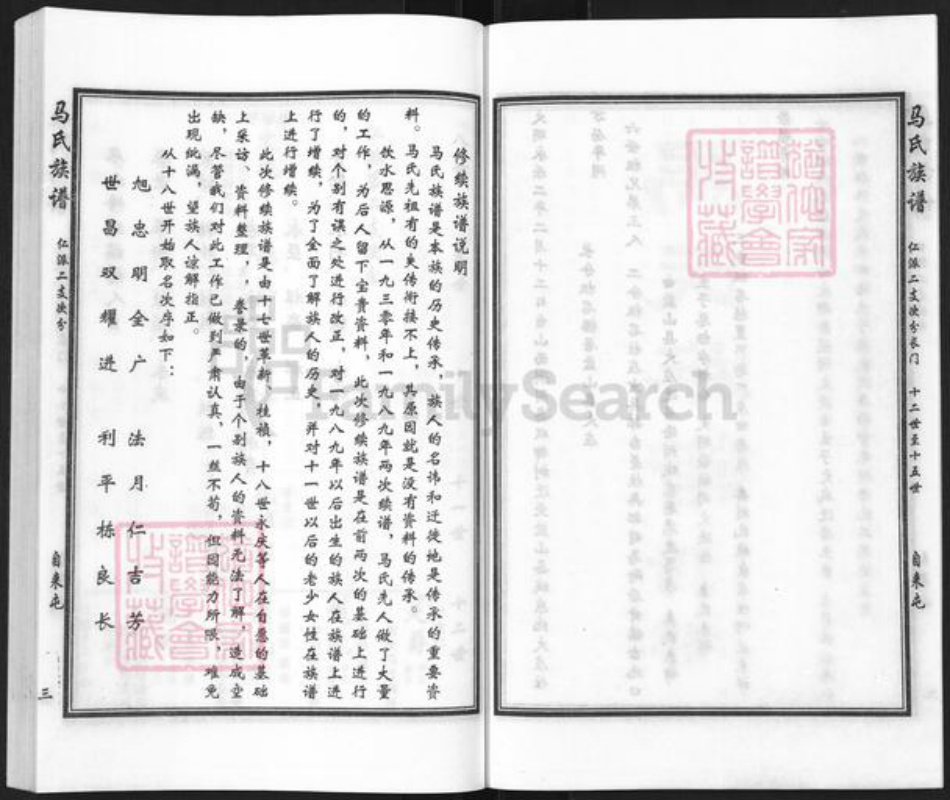 马氏族谱 仁派二支次分长门 十二世至十五世 自来屯
修续族谱说明
马氏族谱是本族的历史传承，族人的名讳和迁徙地是传承的重要资
料。马氏先祖有的失传衔接不上，其原因就是没有资料的传承。
饮水思源，从一九三零年和一九八九年两次续谱，马氏先人做了大量
的工作，为后人留下宝贵资料，此次修续族谱是在前两次的基础上进行
的，对个别有误之处进行改正，对一九八九年以后出生的族人在族谱上进
行了增续，为了全面了解族人的历史，并对十一世以后的老少女性在族谱
上进行增续。
此次修续族谱是由十七世革新、桂祯，十八世永庆等人在自愿的基础
上采访、资料整理，、誊录的，由于个别族人的资料无法了解，造成空
缺，尽管我们对此工作已做到严肃认真，一丝不苟，但因能力所限，难免
出现纰漏，望族人谅解指正。
从十八世开始取名次序如下：
旭忠明全广 法月仁吉芳
世昌双耀进 利平栋良长
马氏族谱 仁派二支次分 自来屯 三
FamilySearch